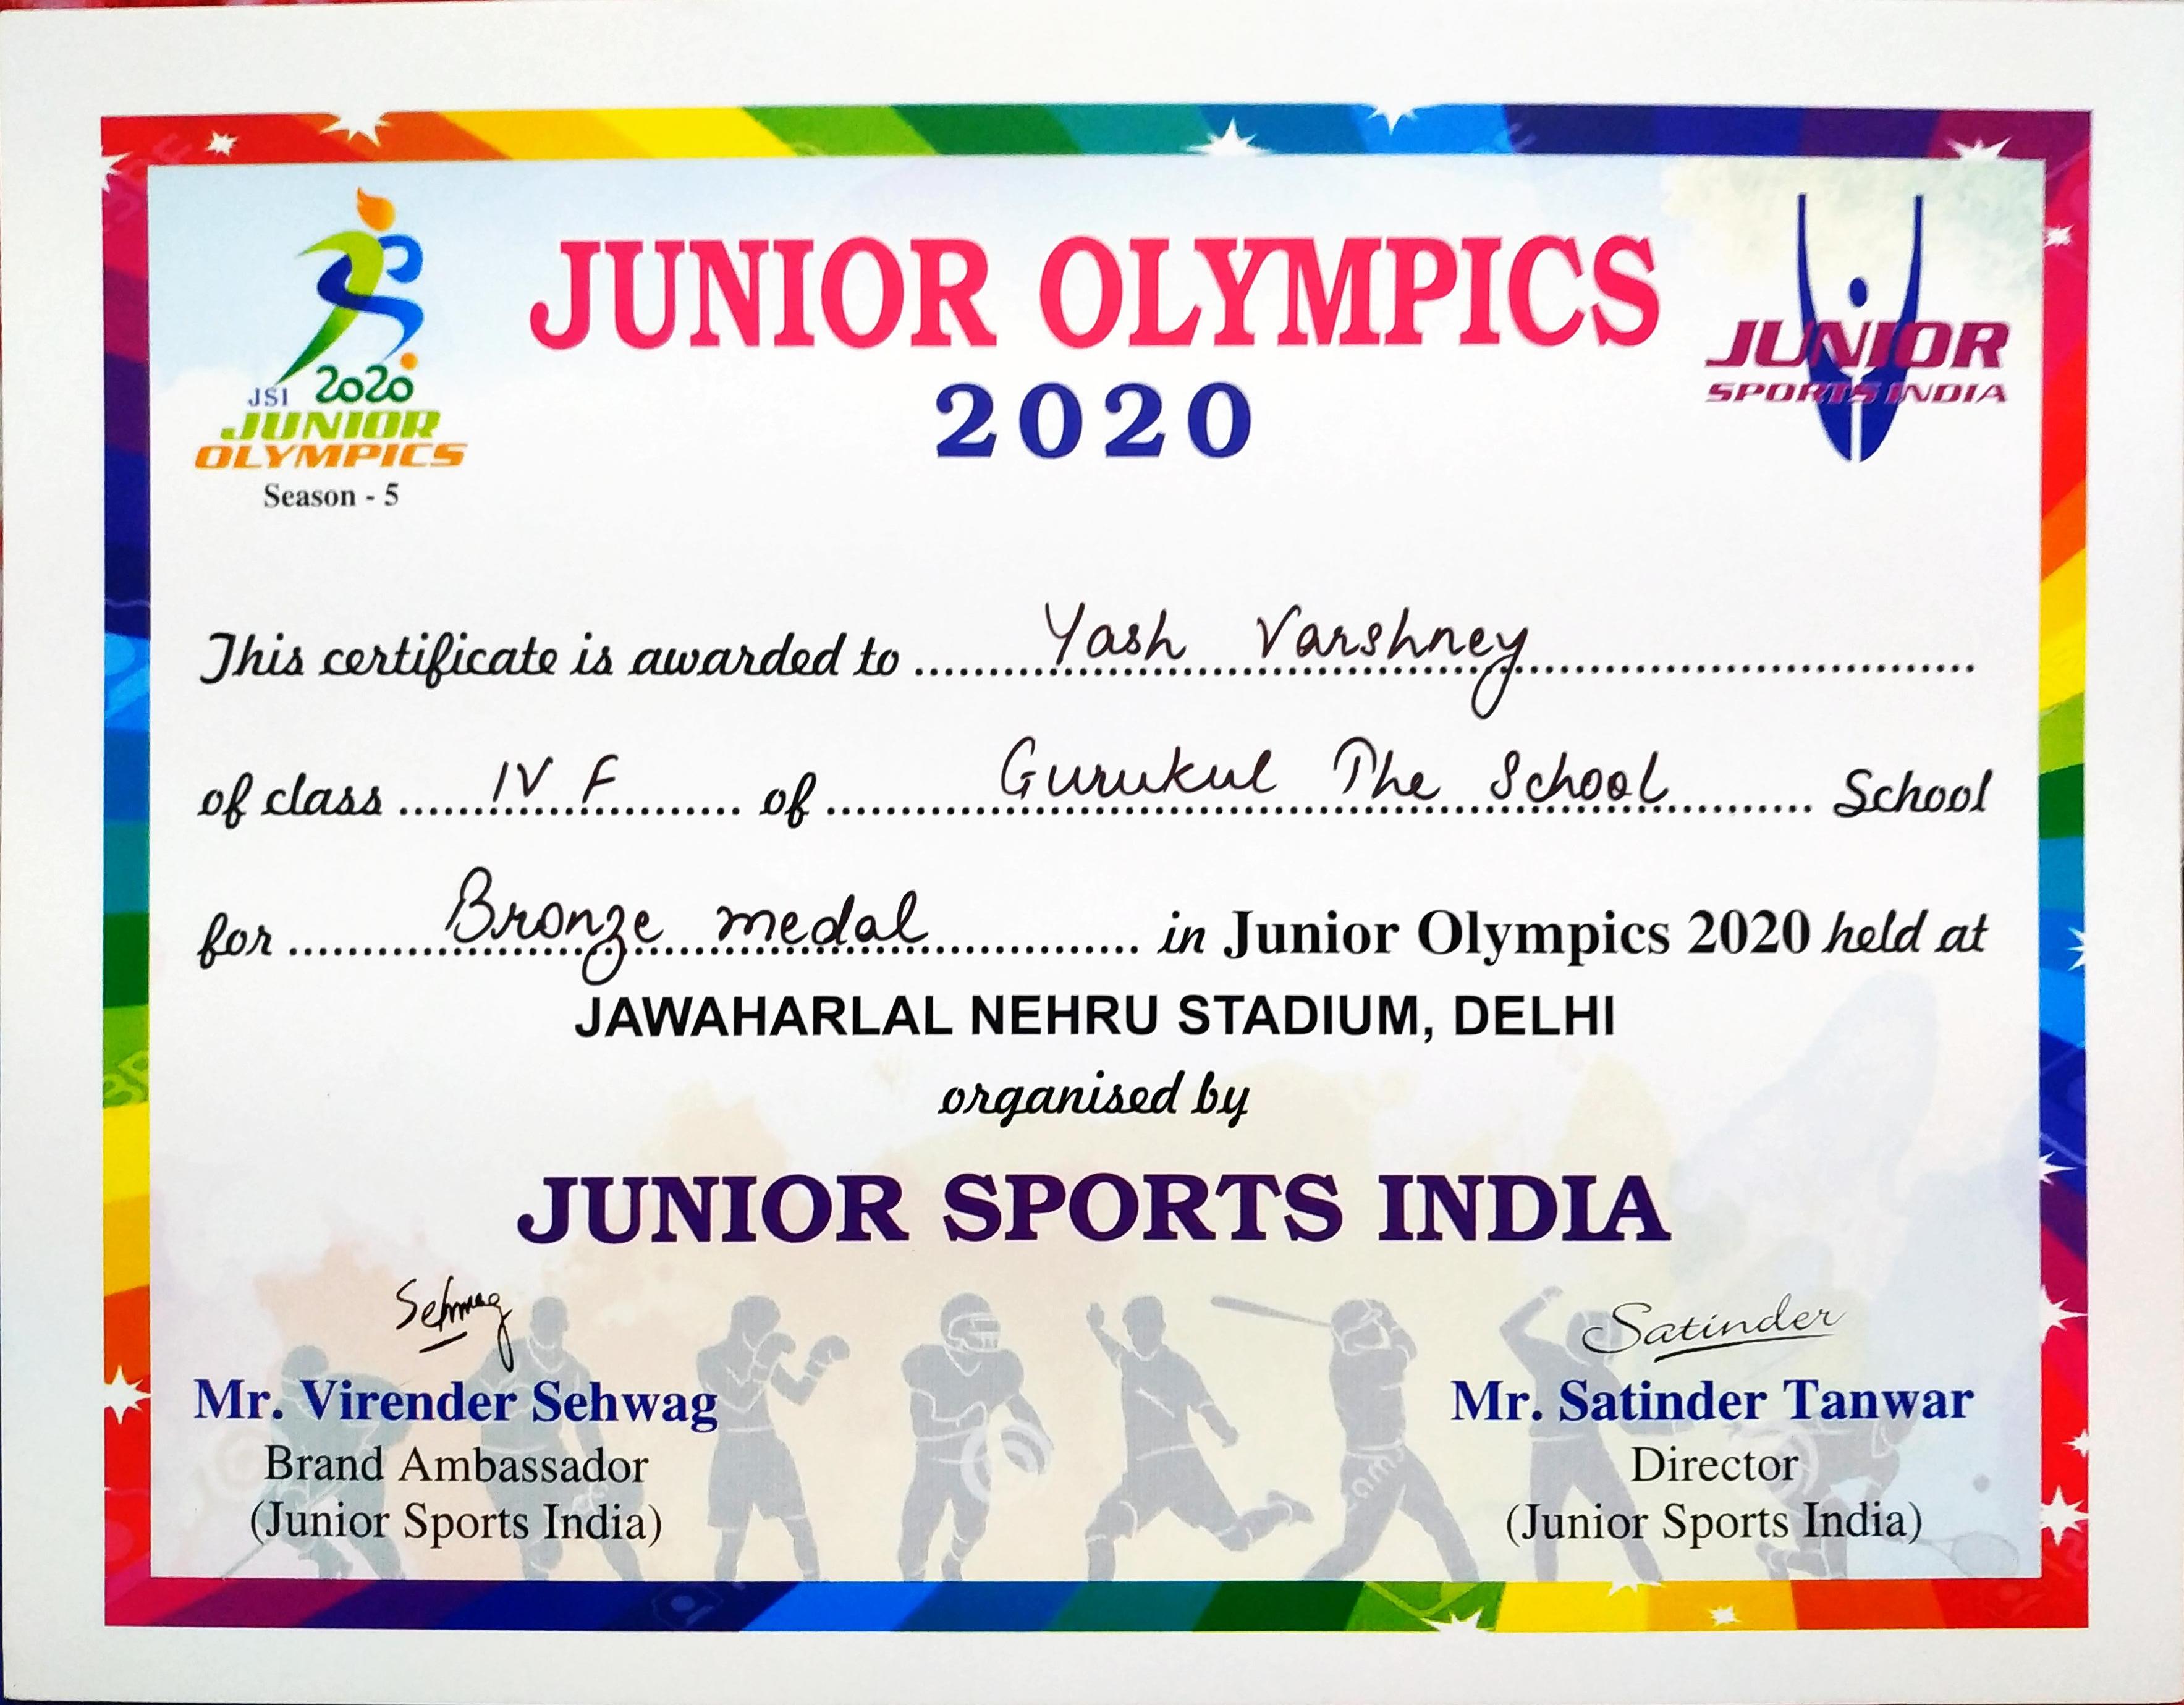 JUNIOR OLYMPICS
2020
JSI 2020
JUNIOR
OLYMPICS
Season - 5
JUNIOR
SPORTS INDIA
This certificate is awarded to Yash Varshney
of class IV F of Gurukul The School School
for Bronze medal in Junior Olympics 2020 held at
JAWAHARLAL NEHRU STADIUM, DELHI
organised by
JUNIOR SPORTS INDIA
Sehwag
Mr. Virender Sehwag
Brand Ambassador
(Junior Sports India)
Satinder
Mr. Satinder Tanwar
Director
(Junior Sports India)